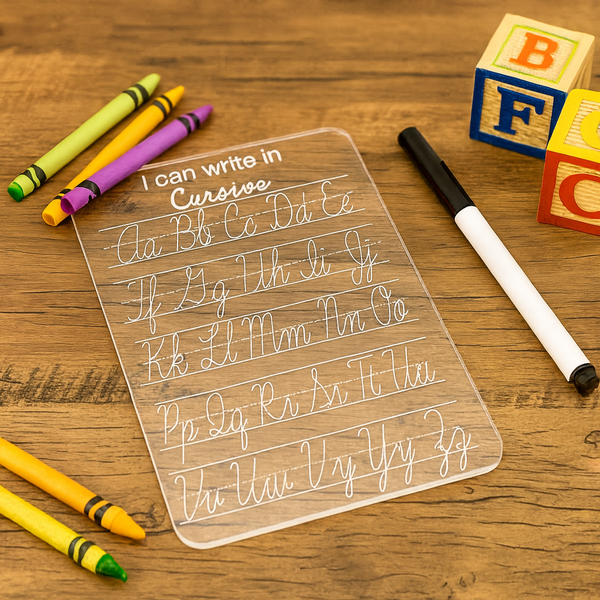 I can write in
Cursive
Aa Bb Cc Dd Ee
Gg Ii Jj
Kk Ll Mm Nn Oo
Pp Qq Rr Tt Uu
Vu Uuu Vy Yy Zz
B
F